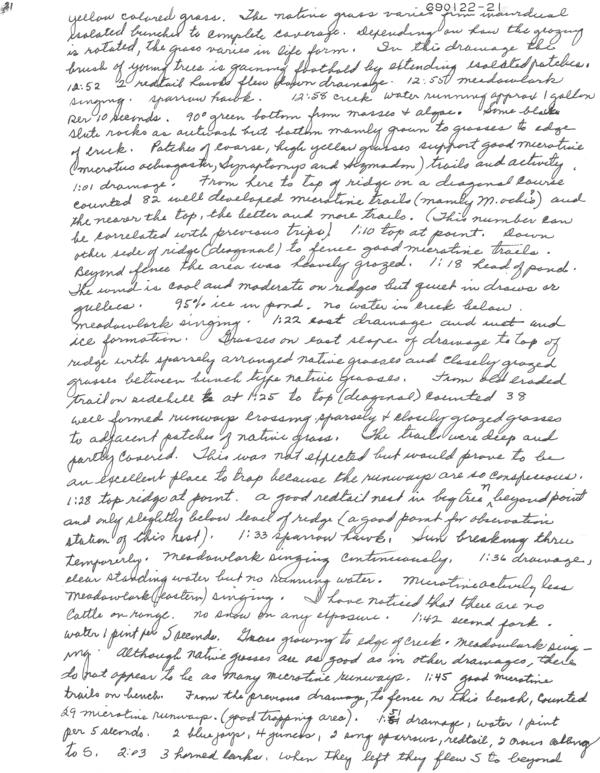 21
690122-21
yellow colored grass. The native grass varies from individual
isolated bunches to complete coverage. Depending on how the grazing
is rotated, the grass varies in life form. In this drainage the
brush of young trees is gaining foothold by extending isolated patches.
12:52 2 redtail hawks flew down drainage. 12:55 meadowlark
singing. sparrow hawk. 12:58 creek water running approx 1 gallon
per 10 seconds. 90% green bottom from mosses & algae. Some black
slate rocks as outwash but bottom mainly grown to grasses to edge
of creek. Patches of coarse, high yellow grasses support good microtine
(microtus ochrogaster, Synaptomys and Sigmodon) trails and activity.
1:01 drainage. From here to top of ridge on a diagonal course
counted 82 well developed microtine trails (mainly M. ochro) and
the nearer the top, the better and more trails. (This number can
be correlated with previous trips) 1:10 top at point. Down
other side of ridge (diagonal) to fence good microtine trails.
Beyond fence the area was heavily grazed. 1:18 head of pond.
The wind is cool and moderate on ridges but quiet in draws or
gullies. 95% ice in pond. no water in creek below.
meadowlark singing. 1:22 east drainage and wet and
ice formation. Grasses on east slope of drainage to top of
ridge with sparsely arranged native grasses and closely grazed
grasses between bunch type native grasses. From old eroded
trail on sidehill at 1:25 to top (diagonal) counted 38
well formed runways crossing sparsely & closely grazed grasses
to adjacent patches of native grass. The trails were deep and
partly covered. This was not expected but would prove to be
an excellent place to trap because the runways are so conspicuous.
1:28 top ridge at point. a good redtail nest in big tree beyond point
and only slightly below level of ridge (a good point for observation
station of this nest). 1:33 sparrow hawk. Sun breaking thru
temporarily. Meadowlark singing continuously. 1:36 drainage,
clear standing water but no running water. Microtine activity less
Meadowlark (eastern) singing. I have noticed that there are no
cattle on range. no snow on any exposure. 1:42 second fork.
water 1 pint per 5 seconds. Grass growing to edge of creek. Meadowlark sing-
ing. Although native grasses are as good as in other drainages, there
do not appear to be as many microtine runways. 1:45 good microtine
trails on bench. From the previous drainage, to fence on this bench, counted
29 microtine runways. (good trapping area). 1:51 drainage, water 1 pint
per 5 seconds. 2 blue jays, 4 juncos, 2 song sparrows, redtail, 2 crows calling
to S. 2:03 3 horned larks. when they left they flew S to beyond